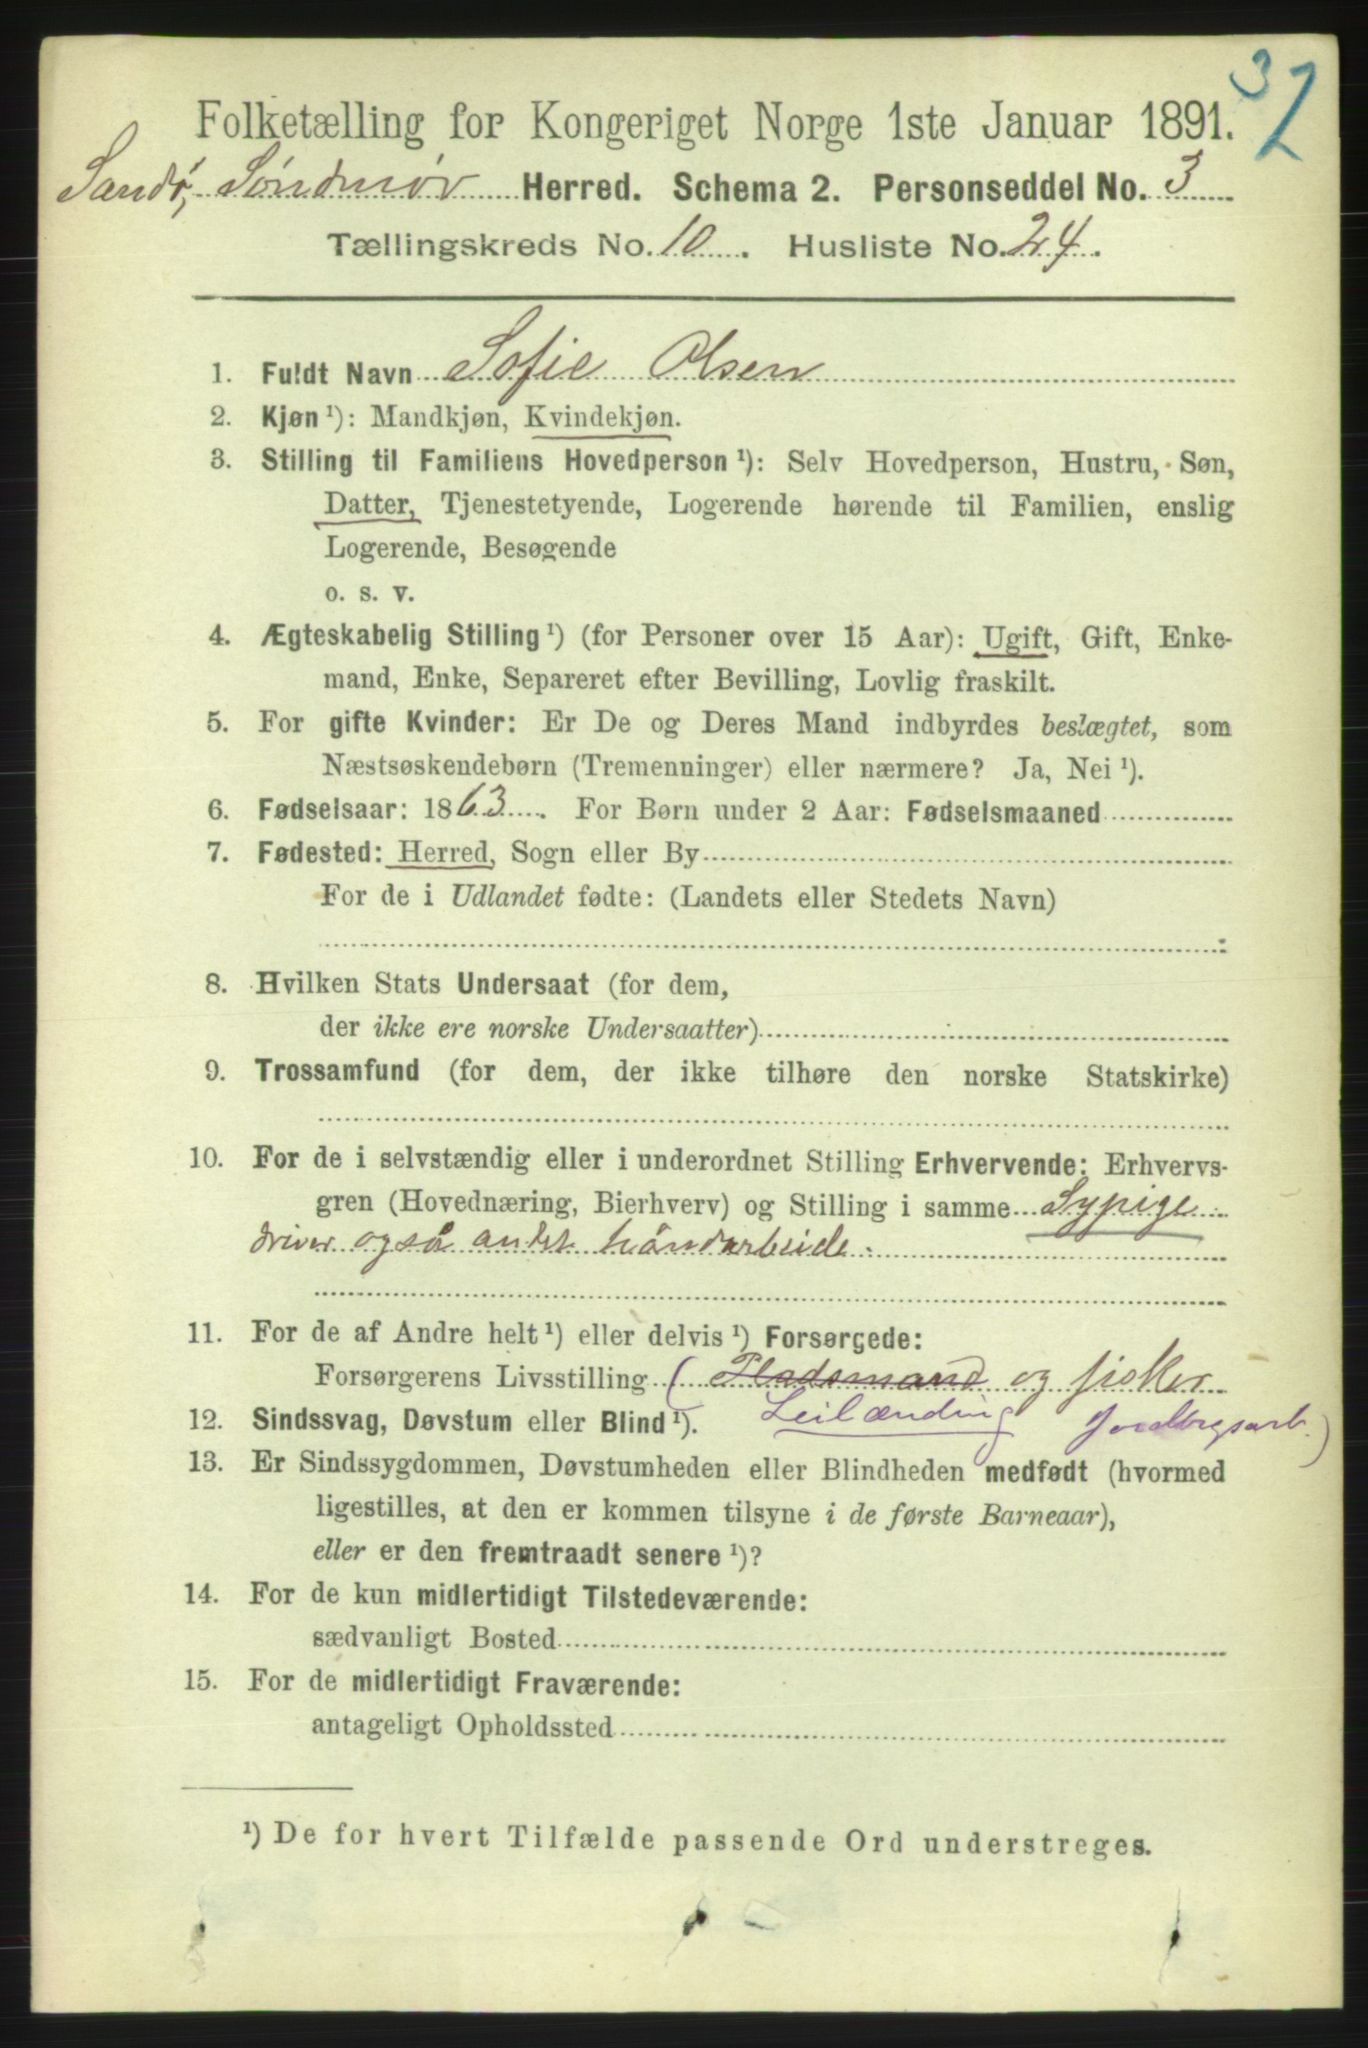 32
Folketælling for Kongeriget Norge 1ste Januar 1891.
Sandø, Søndmør Herred. Schema 2. Personseddel No. 3
Tællingskreds No. 10. Husliste No. 24.
1. Fuldt Navn Sofie Olsen
2. Kjøn ¹): Mandkjøn, Kvindekjøn.
3. Stilling til Familiens Hovedperson ¹): Selv Hovedperson, Hustru, Søn,
Datter, Tjenestetyende, Logerende hørende til Familien, enslig
Logerende, Besøgende
o. s. v.
4. Ægteskabelig Stilling ¹) (for Personer over 15 Aar): Ugift, Gift, Enke-
mand, Enke, Separeret efter Bevilling, Lovlig fraskilt.
5. For gifte Kvinder: Er De og Deres Mand indbyrdes beslægtet, som
Næstsøskendebørn (Tremenninger) eller nærmere? Ja, Nei ¹).
6. Fødselsaar: 1863. For Børn under 2 Aar: Fødselsmaaned
7. Fødested: Herred, Sogn eller By
For de i Udlandet fødte: (Landets eller Stedets Navn)
8. Hvilken Stats Undersaat (for dem,
der ikke ere norske Undersaatter)
9. Trossamfund (for dem, der ikke tilhøre den norske Statskirke)
10. For de i selvstændig eller i underordnet Stilling Erhvervende: Erhvervs-
gren (Hovednæring, Bierhverv) og Stilling i samme Sypige
driver også andet håndarbeide.
11. For de af Andre helt ¹) eller delvis ¹) Forsørgede:
Forsørgerens Livsstilling (Pladsmand og fisker
12. Sindssvag, Døvstum eller Blind ¹). Leilænding Jordbrugsarb.)
13. Er Sindssygdommen, Døvstumheden eller Blindheden medfødt (hvormed
ligestilles, at den er kommen tilsyne i de første Barneaar),
eller er den fremtraadt senere ¹)?
14. For de kun midlertidigt Tilstedeværende:
sædvanligt Bosted
15. For de midlertidigt Fraværende:
antageligt Opholdssted
¹) De for hvert Tilfælde passende Ord understreges.